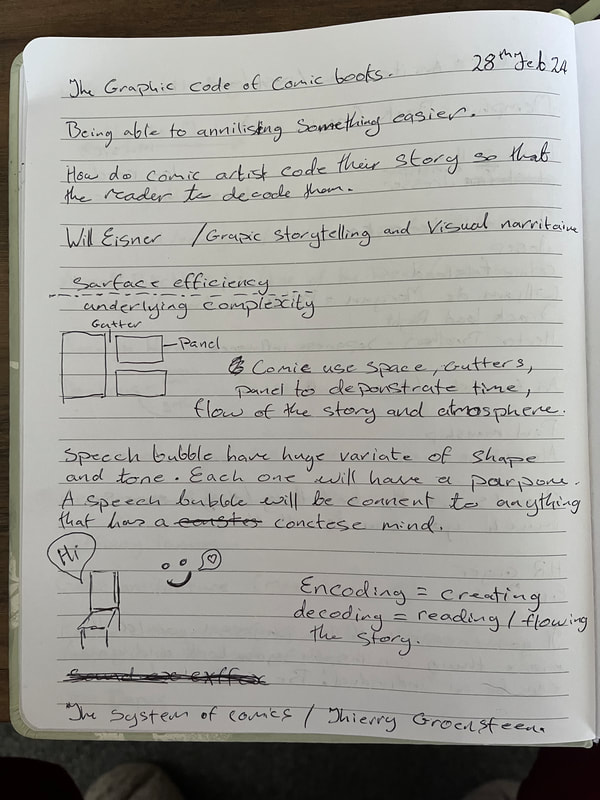 28th Feb 24
The Graphic code of Comic books.
Being able to annilisking something easier.
How do comic artist code their story so that
the reader to decode them.
Will Eisner / Grapic storytelling and Visual narritaive
Surface efficiency
underlying complexity
Gutter
Panel
Comic use space, Gutters,
panel to deponstrate time,
flow of the story and atmosphere.
Speech bubble have huge variate of shape
and tone. Each one will have a parpone.
A speech bubble will be connent to anything
that has a conctese mind.
Hi
Encoding = creating
decoding = reading / flowing
the story.
The system of comics / Thierry Groensteen.